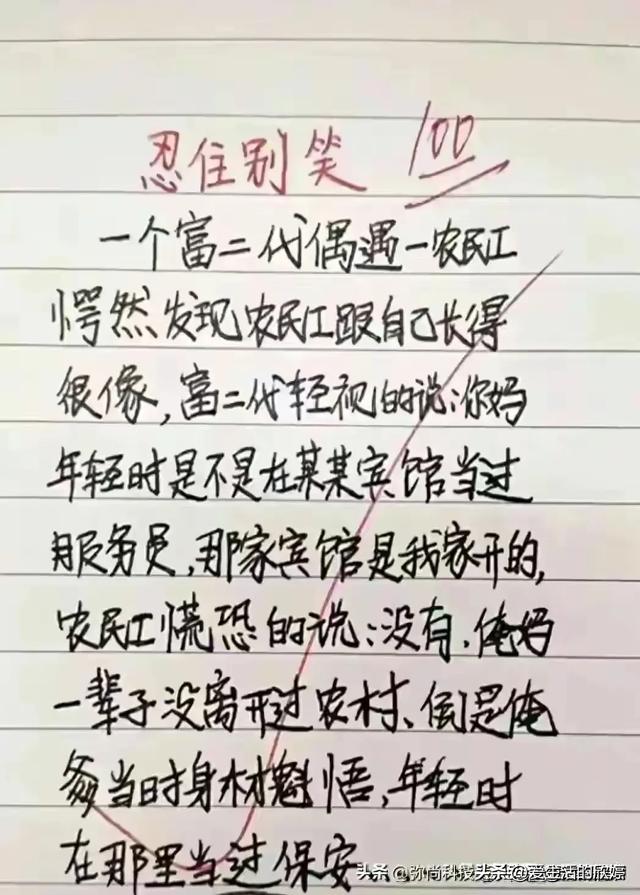 忍住别笑 100
一个富二代偶遇一农民工
愕然发现农民工跟自己长得
很像,富二代轻视的说:你妈
年轻时是不是在某某宾馆当过
服务员,那家宾馆是我家开的,
农民工慌恐的说:没有,俺妈
一辈子没离开过农村、倒是俺
爹当时身材魁悟,年轻时
在那里当过保安......
头条@弥尚科技 头条@爱生活的欣嫱